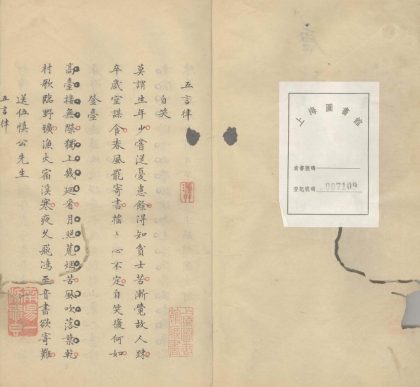 上海圖書館
索書號碼
登記號碼 007109
五言律
自笑
莫謂生年少嘗從憂患餘得知貧士苦漸覺故人疎
卒歲室謀食春風寄書心不定自笑復何如
登臺
高臺接無際獨上幾廻看月照荒苦風吹落葉乾
村歌臨野曠漁火宿溪寒夜久飛鴻至音書欲寄難
送伍慎公先生
五言律